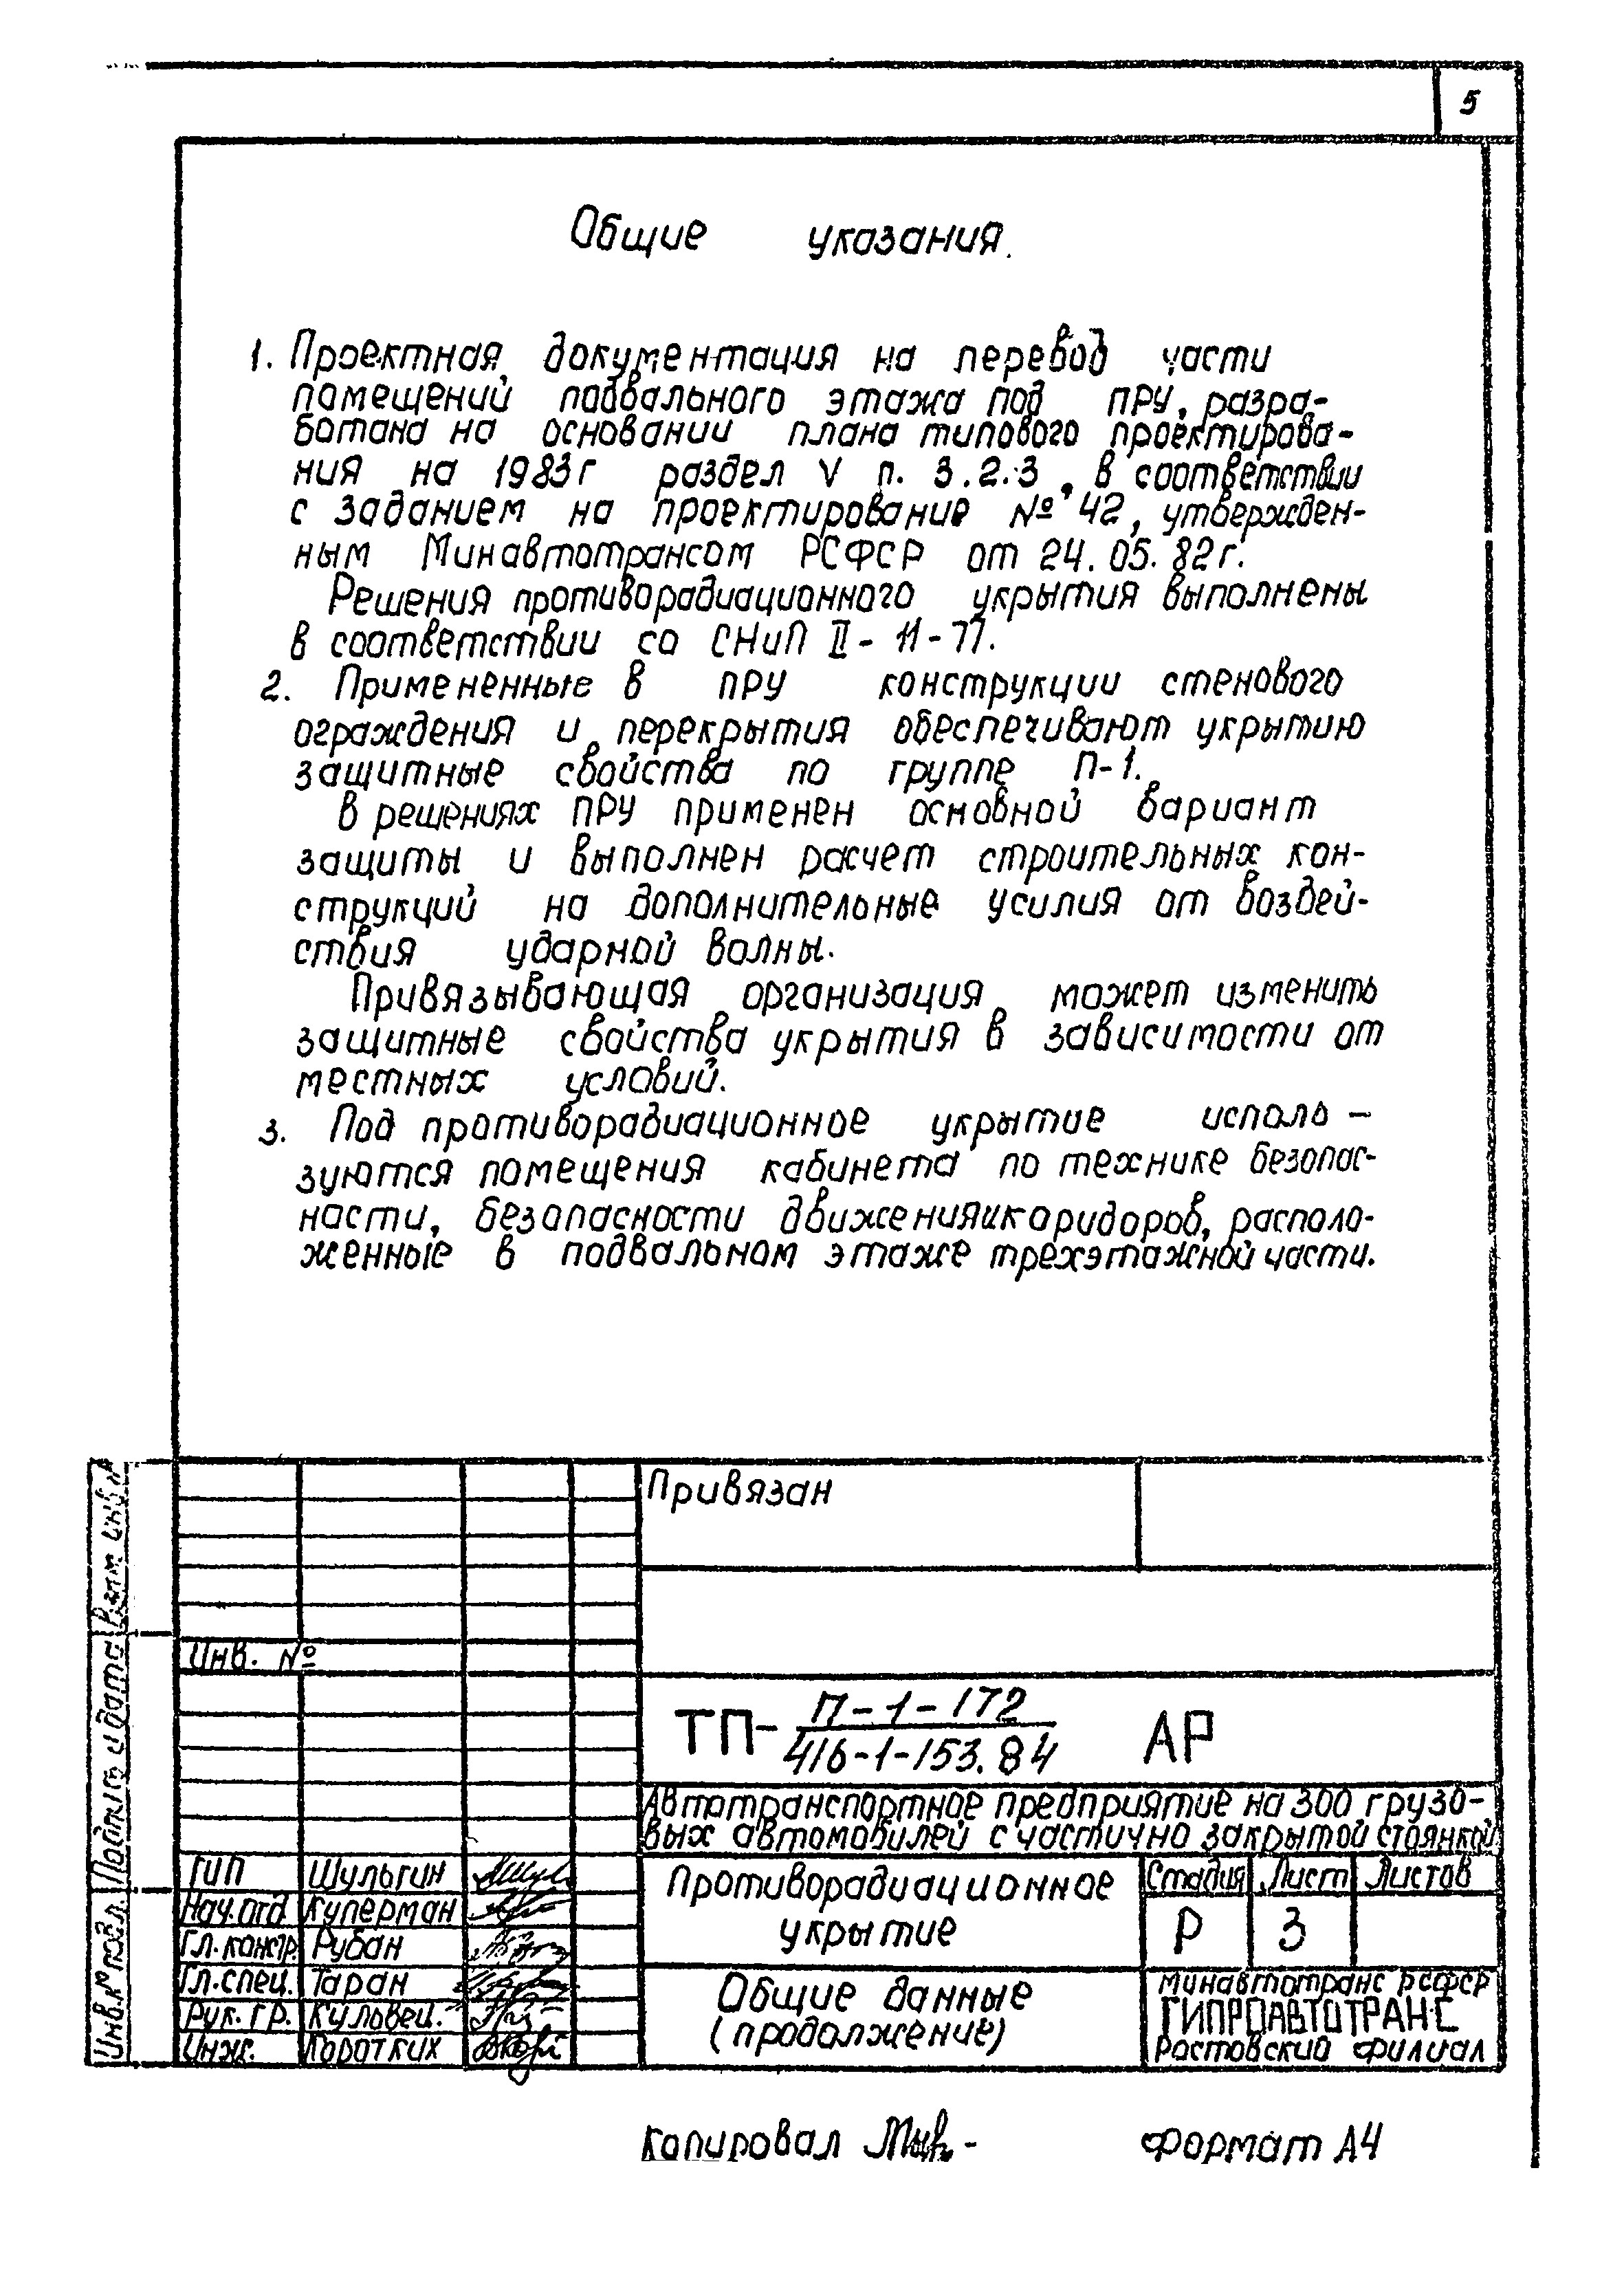 5
Общие указания.
1. Проектная документация на перевод части
помещений подвального этажа под ПРУ, разра-
ботана на основании плана типового проектирова-
ния на 1983г раздел V п. 3.2.3, в соответствии
с заданием на проектирование № 42, утвержден-
ным Минавтотрансом РСФСР от 24.05.82г.
Решения противорадиационного укрытия выполнены
в соответствии со СНиП II-11-77.
2. Примененные в ПРУ конструкции стенового
ограждения и перекрытия обеспечивают укрытию
защитные свойства по группе П-1.
В решениях ПРУ применен основной вариант
защиты и выполнен расчет строительных кон-
струкций на дополнительные усилия от воздей-
ствия ударной волны.
Привязывающая организация может изменить
защитные свойства укрытия в зависимости от
местных условий.
3. Под противорадиационное укрытие исполь-
зуются помещения кабинета по технике безопас-
ности, безопасности движения и коридоров, располо-
женные в подвальном этаже трехэтажной части.
Привязан
Инв. №
ТП- П-1-172 АР
416-1-153.84
Автотранспортное предприятие на 300 грузо-
вых автомобилей с частично закрытой стоянкой
ГИП Шульгин
Нач.отд Куперман
Гл.констр. Рубан
Гл.спец. Таран
Рук. гр. Куловец.
Инж. Коротких
Противорадиационное
укрытие
Стадия Лист Листов
Р 3
Общие данные
(продолжение)
Минавтотранс РСФСР
ГИПРОАВТОТРАНС
Ростовский филиал
Взам инв №
Подпись и дата
Инв.№ подл.
Копировал
Формат А4